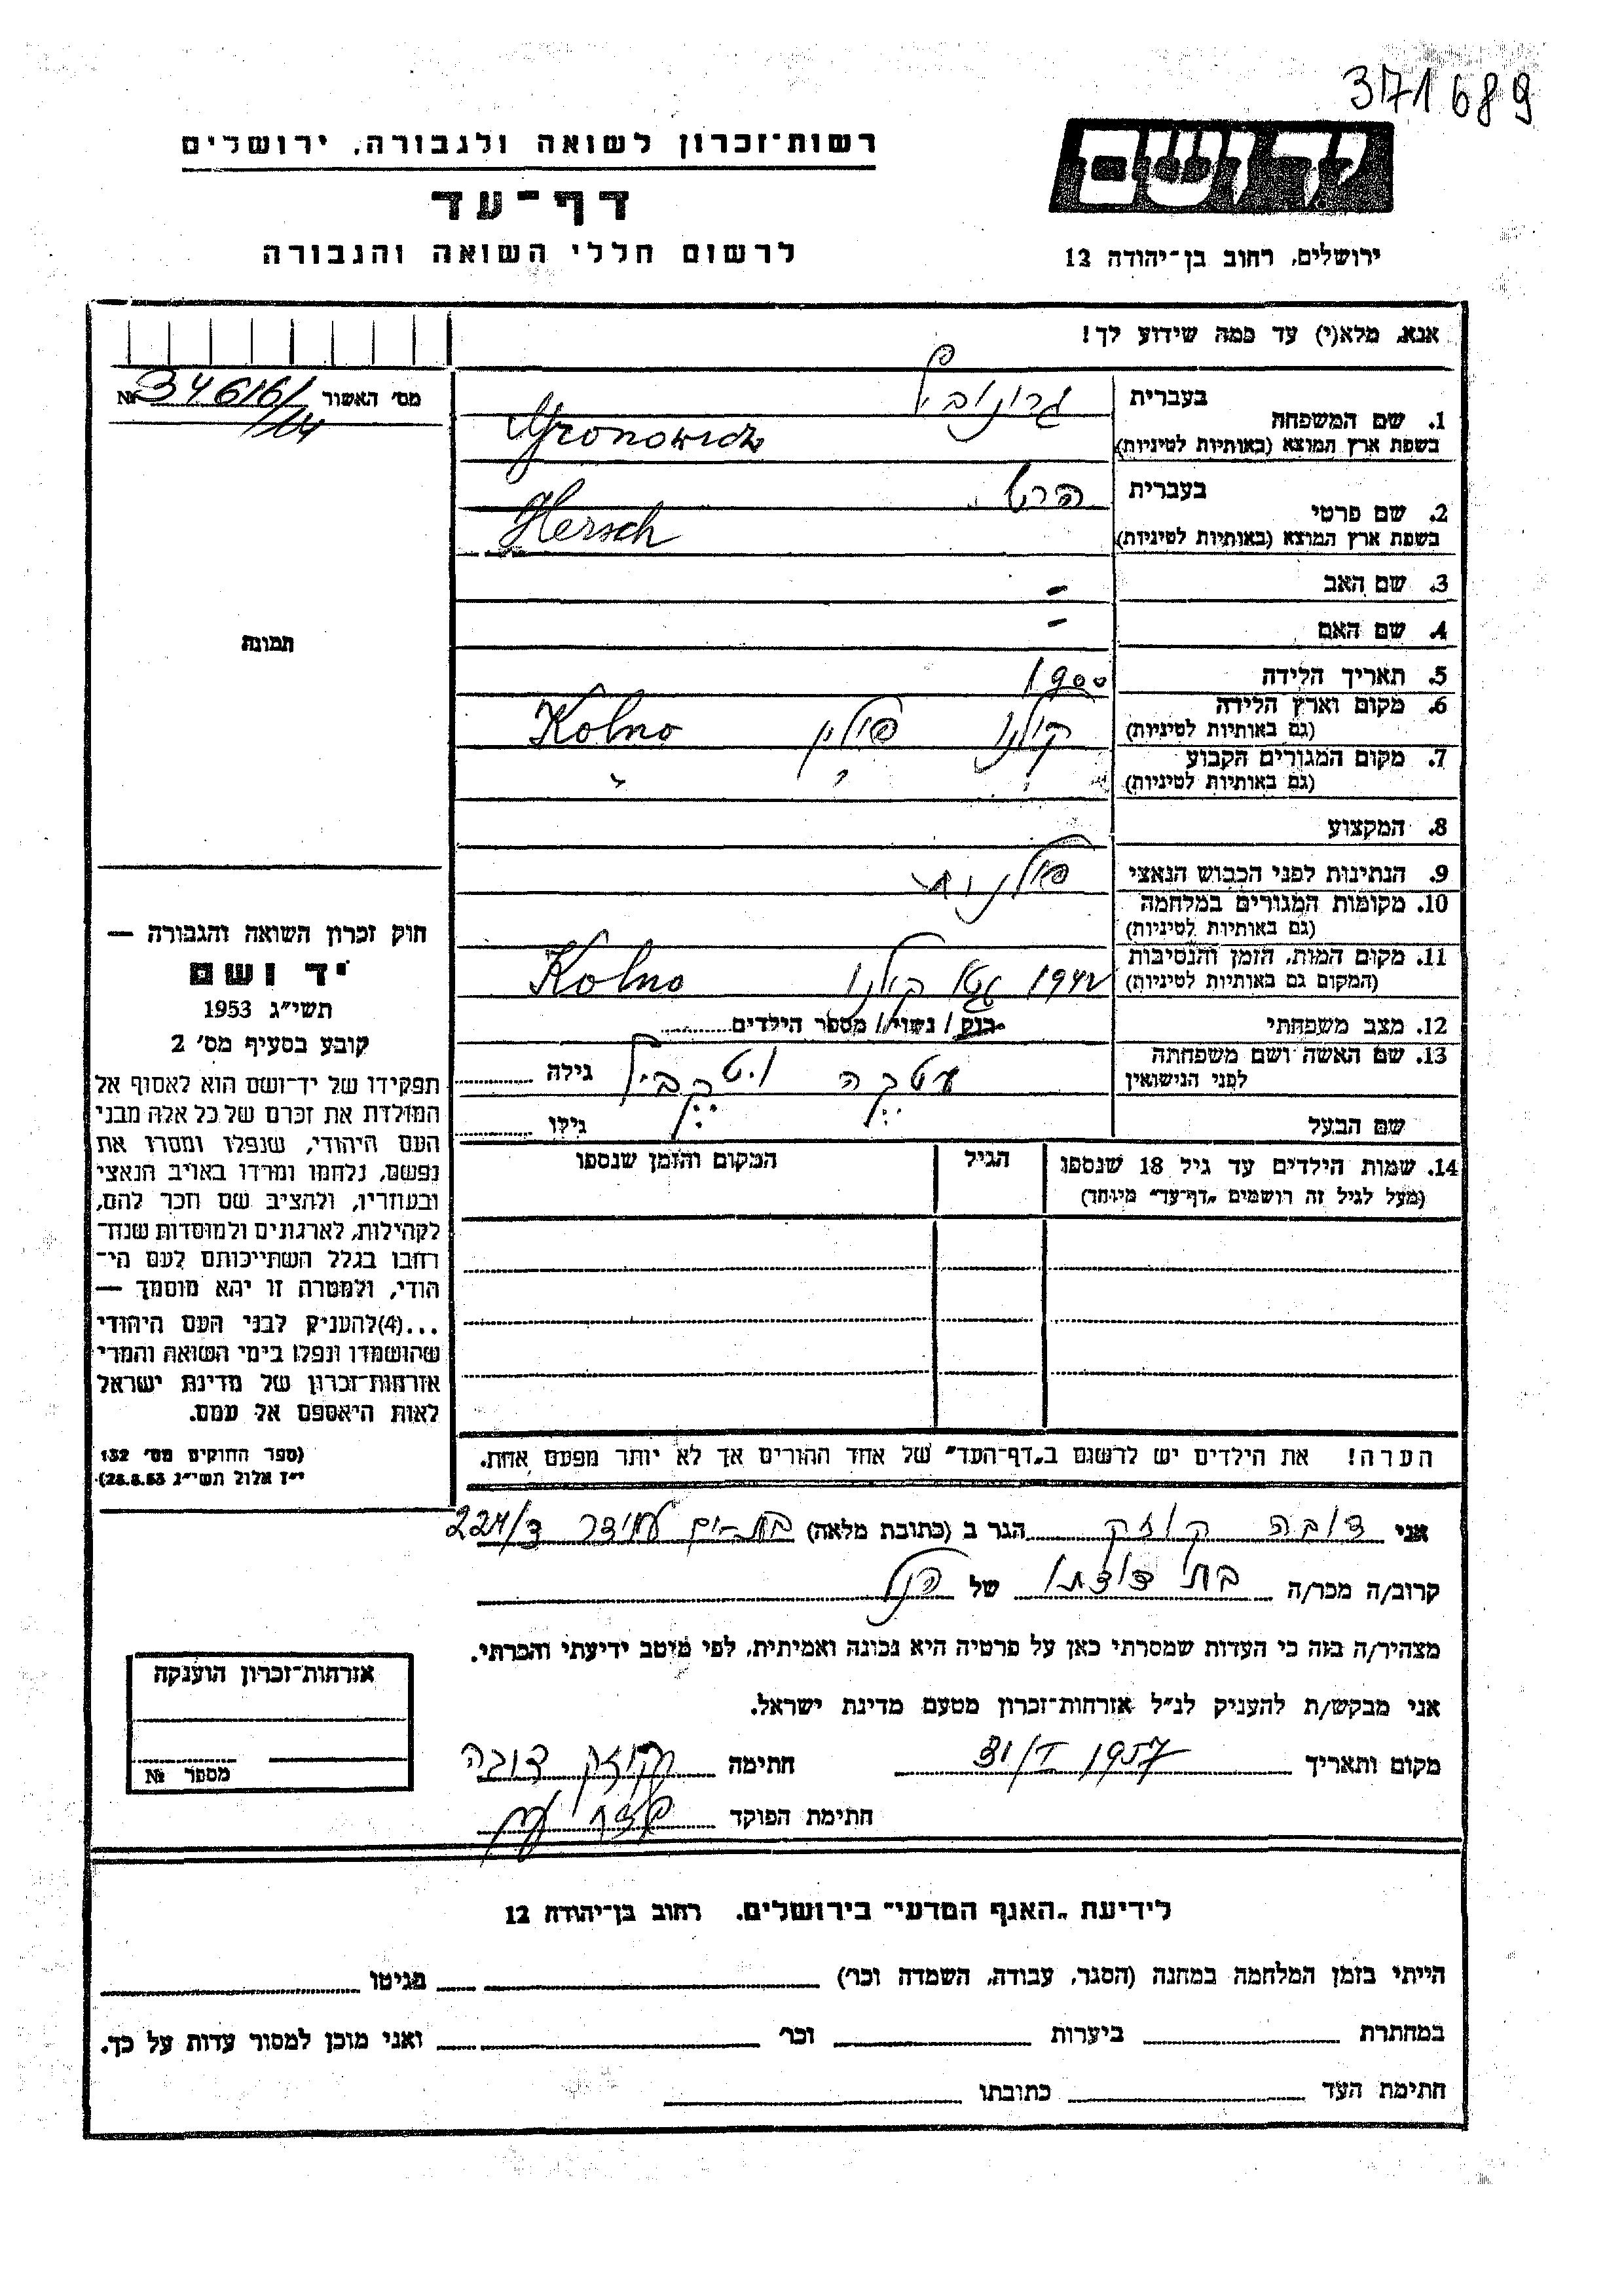 371689
רשות־זכרון לשואה ולגבורה, ירושלים
דף־עד
לרשום חללי השואה והגבורה
יד ושם
ירושלים, רחוב בן־יהודה 12
אנא, מלא(י) עד כמה שידוע לך!
מס' האשור 34616/104 №
1. שם המשפחה
בעברית גרונוביץ
בשפת ארץ המוצא (באותיות לטיניות) Gronowicz
2. שם פרטי
בעברית הרש
בשפת ארץ המוצא (באותיות לטיניות) Hersch
3. שם האב -
4. שם האם -
תמונה
5. תאריך הלידה 1900
6. מקום וארץ הלידה
(גם באותיות לטיניות) קולנו פולין Kolno
7. מקום המגורים הקבוע
(גם באותיות לטיניות) " " "
8. המקצוע
9. הנתינות לפני הכבוש הנאצי פולנית
10. מקומות המגורים במלחמה
(גם באותיות לטיניות)
11. מקום המות, הזמן והנסיבות
(המקום גם באותיות לטיניות) 1942 גטו קולנו Kolno
12. מצב משפחתי רווק / נשוי / מספר הילדים
13. שם האשה ושם משפחתה
לפני הנישואין עטקה גילה
שם הבעל גילו
14. שמות הילדים עד גיל 18 שנספו
(מעל לגיל זה רושמים „דף־עד" מיוחד)
הגיל
המקום והזמן שנספו
הערה! את הילדים יש לרשום ב„דף־העד" של אחד ההורים אך לא יותר מפעם אחת.
חוק זכרון השואה והגבורה —
יד ושם
תשי"ג 1953
קובע בסעיף מס' 2
תפקידו של יד־ושם הוא לאסוף אל
המולדת את זכרם של כל אלה מבני
העם היהודי, שנפלו ומסרו את
נפשם, נלחמו ומרדו באויב הנאצי
ובעוזריו, ולהציב שם וזכר להם,
לקהילות, לארגונים ולמוסדות שנח־
רבו בגלל השתייכותם לעם הי־
הודי, ולמטרה זו יהא מוסמך —
...(4)להעניק לבני העם היהודי
שהושמדו ונפלו בימי השואה והמרי
אזרחות־זכרון של מדינת ישראל
לאות היאספם אל עמם.
(ספר החוקים מס' 132
י"ז אלול תשי"ג 28.8.53)
אני דובה קוזק הגר ב (כתובת מלאה) בת-ים עמידר ד/224
קרוב/ה מכר/ה בת דודתו של הנ"ל
מצהיר/ה בזה כי העדות שמסרתי כאן על פרטיה היא נכונה ואמיתית, לפי מיטב ידיעתי והכרתי.
אני מבקש/ת להעניק לנ"ל אזרחות־זכרון מטעם מדינת ישראל.
מקום ותאריך 1957 חתימה קוזק דובה
חתימת הפוקד
אזרחות־זכרון הוענקה
מספר №
לידיעת „האגף המדעי" בירושלים, רחוב בן־יהודה 12
הייתי בזמן המלחמה במחנה (הסגר, עבודה, השמדה וכו') בגיטו
במחתרת ביערות וכו' ואני מוכן למסור עדות על כך.
חתימת העד כתובתו